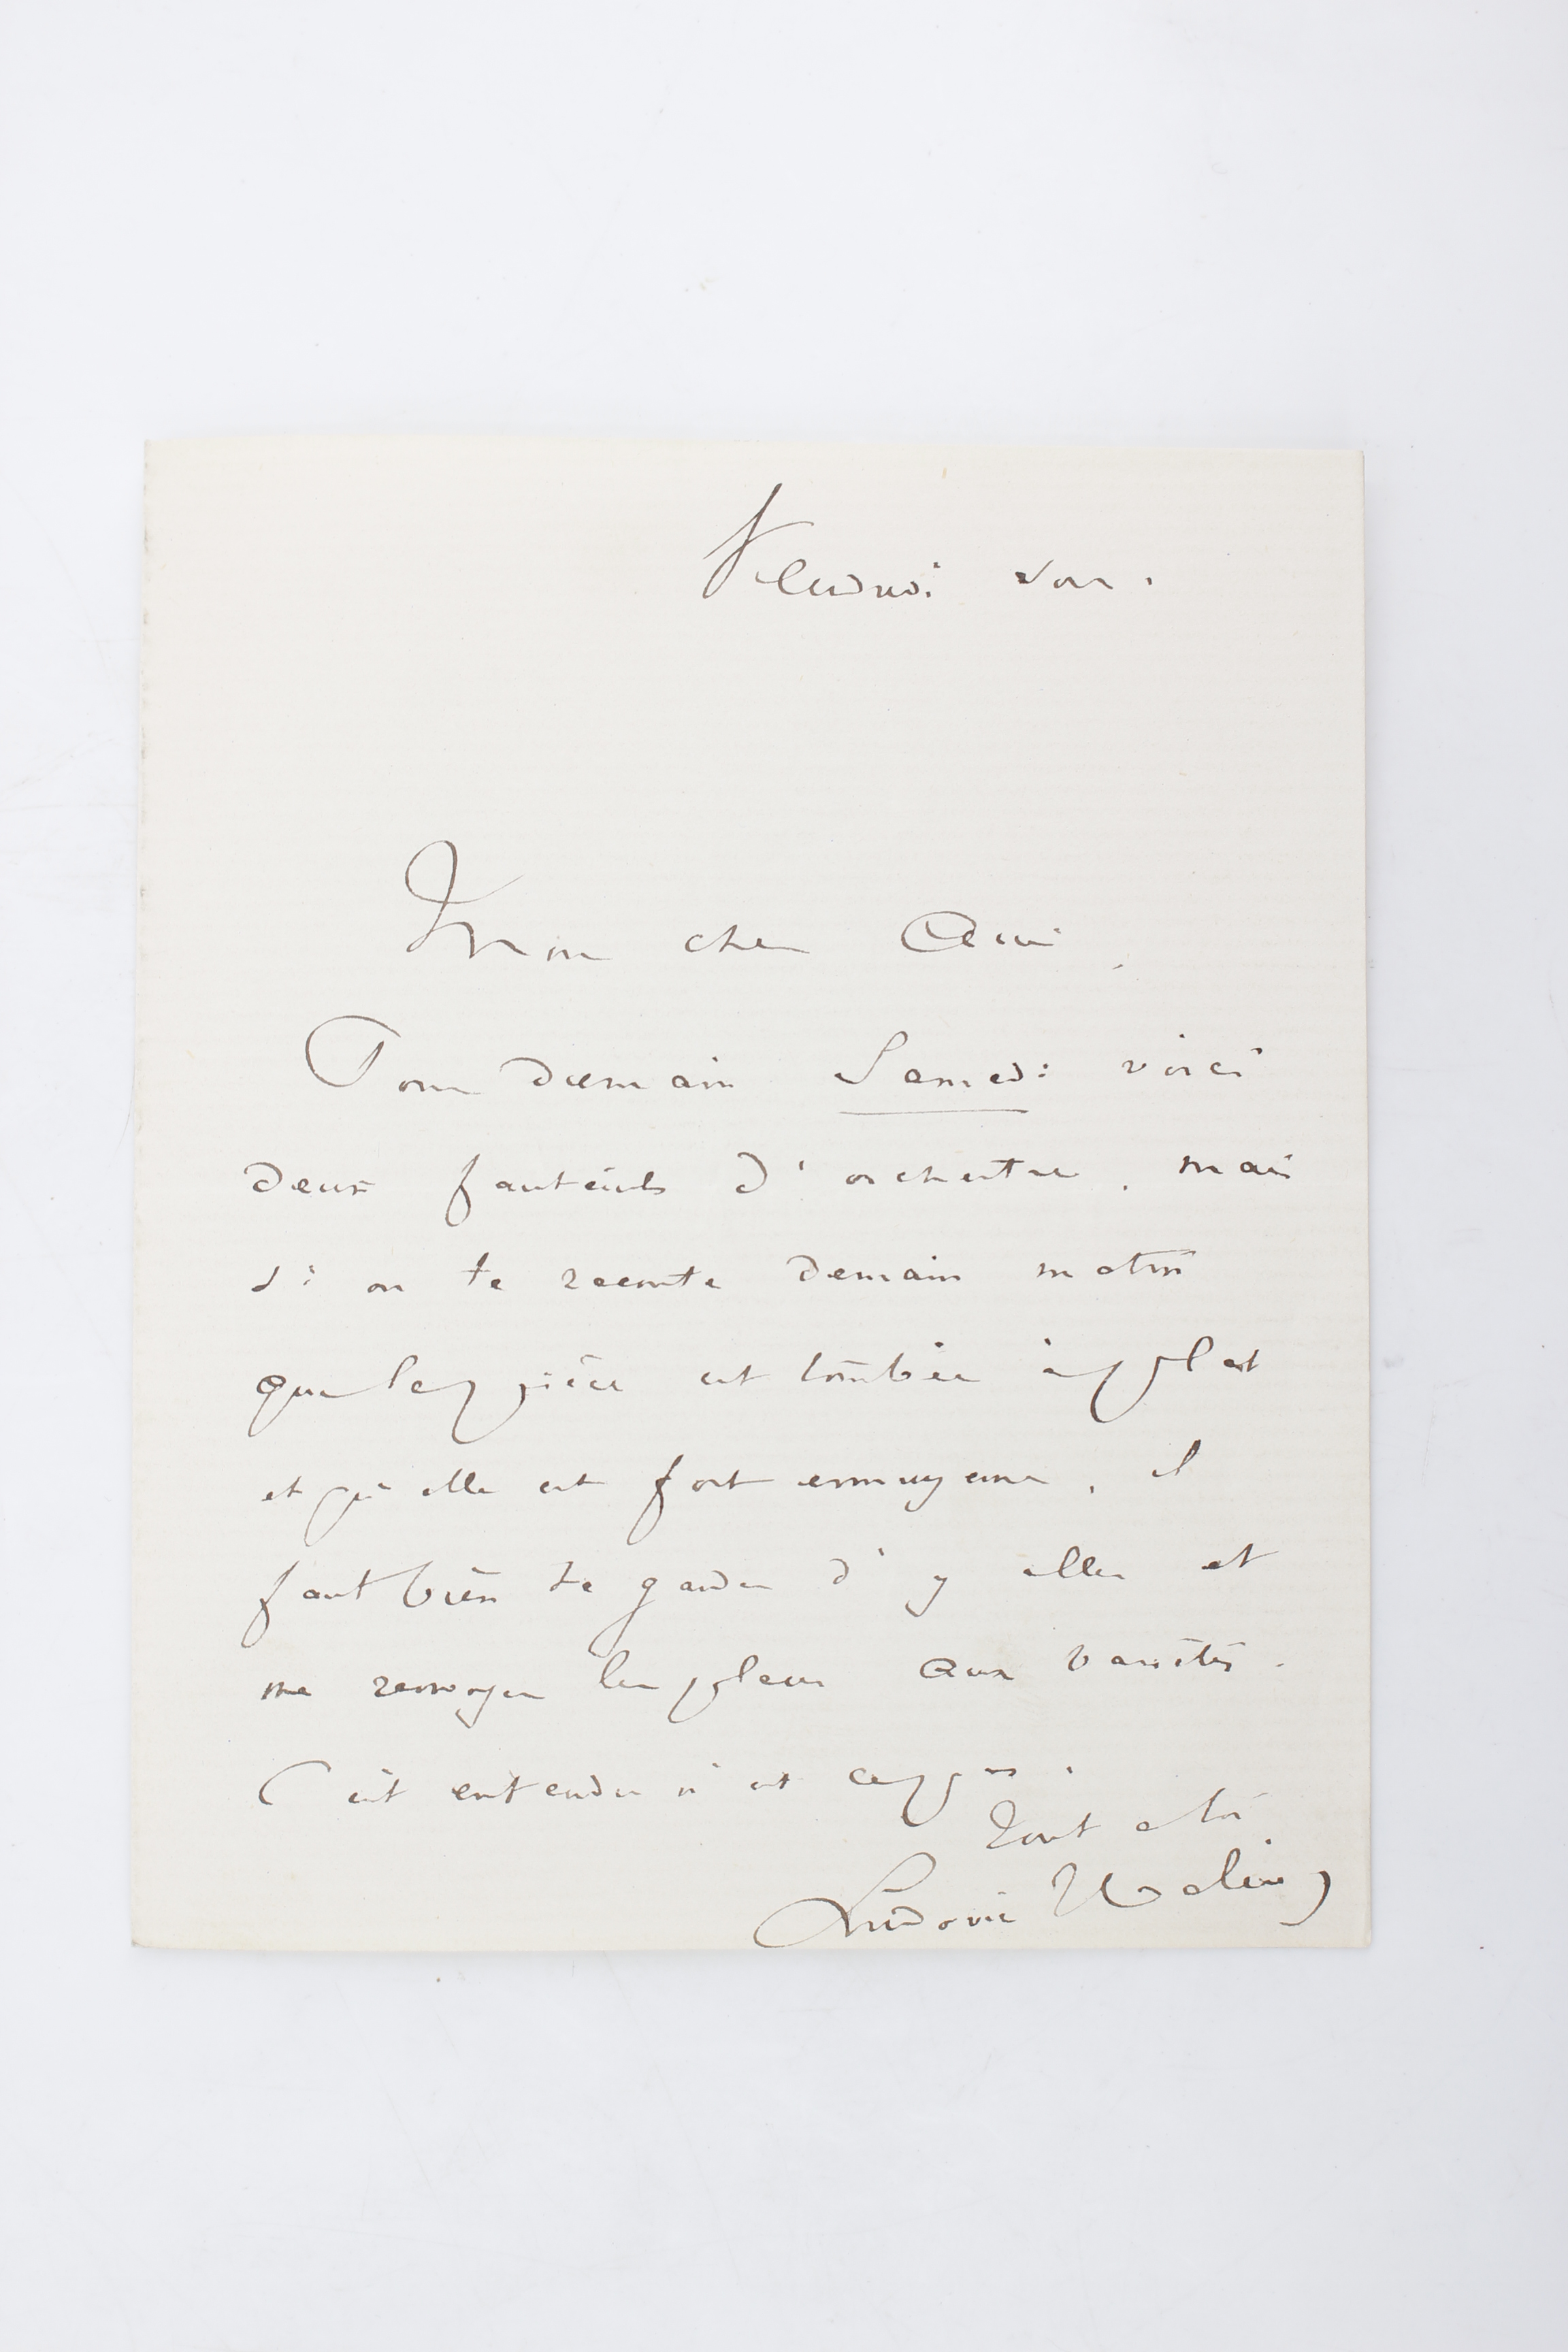 Vendredi soir.
Mon cher Ami,
Pour demain Samedi voici
deux fauteuils d'orchestre, mais
si on te raconte demain matin
que la pièce est tombée à plat
et qu'elle est fort ennuyeuse, il
faut bien te garder d'y aller et
me renvoyer les places aux Variétés.
C'est entendu n'est ce pas.
Tout à toi
Ludovic Halévy